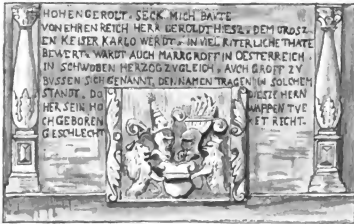 HOHENGEROLT · SECK MICH BAVTE
VON EHREN REICH HERR GEROLDT HIESZ · DEM GROSZ
EN KEISER KARLO WERDT · IN VIEL RITERLICHE THATE
BEWERT · WARDT AUCH MARKGROFF IN OESTERREICH ·
IN SCHWOBEN HERZOG ZVGLEICH · AUCH GROFF ZV
BVSSEN SICH GENANNT, DEN NAMEN TRAGEN IN SOLCHEM
STANDT, DO DIESZE HERN
HER SEIN HO WAPPEN TVE
CHGEBOREN ET RICHT·
GESCHLECHT